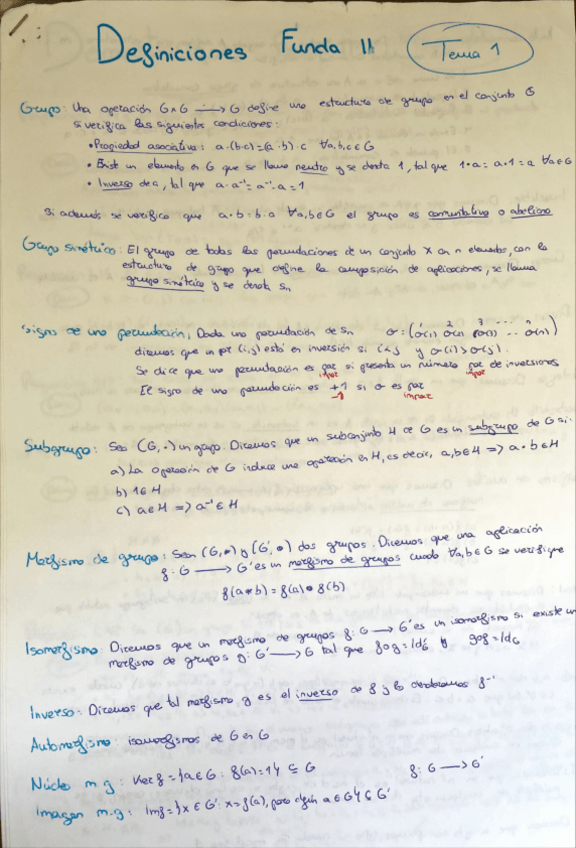 Definiciones Funda II
Tema 1
Grupo: Una operación G×G ⟶ G define una estructura de grupo en el conjunto G
si verifica las siguientes condiciones:
• Propiedad asociativa: a·(b·c)=(a·b)·c ∀a,b,c∈G
• Exist un elemento en G que se llama neutro y se denota 1, tal que 1·a=a·1=a ∀a∈G
• Inverso de a, tal que a·a⁻¹=a⁻¹·a=1
Si además se verifica que a·b=b·a ∀a,b∈G el grupo es conmutativo o abeliano
Grupo simétrico: El grupo de todas las permutaciones de un conjunto X con n elementos, con la
estructura de grupo que define la composición de aplicaciones, se llama
grupo simétrico y se denota Sn
Signo de una permutación: Dada una permutación de Sn σ:(1 2 3 ... n
σ(1) σ(2) σ(3) ... σ(n))
diremos que un par (i,j) está en inversión si i<j y σ(i)>σ(j).
Se dice que una permutación es par si presenta un número par de inversiones
impar impar
El signo de una permutación es +1 si σ es par
-1 impar
Subgrupo: Sea (G,·) un grupo. Diremos que un subconjunto H de G es un subgrupo de G si:
a) La operación de G induce una operación en H, es decir, a,b∈H => a·b∈H
b) 1∈H
c) a∈H => a⁻¹∈H
Morfismo de grupo: Sean (G,*) y (G',•) dos grupos. Diremos que una aplicación
f: G ⟶ G' es un morfismo de grupos cuando ∀a,b∈G se verifique
f(a*b)=f(a)•f(b)
Isomorfismo: Diremos que un morfismo de grupos f: G ⟶ G' es un isomorfismo si existe un
morfismo de grupos g: G' ⟶ G tal que f∘g=Id_G' y g∘f=Id_G
Inverso: Diremos que tal morfismo g es el inverso de f y lo denotaremos f⁻¹
Automorfismo: isomorfismos de G en G
Núcleo m.g: Ker f={a∈G: f(a)=1} ⊆ G f: G ⟶ G'
Imagen m.g: Im f={x∈G': x=f(a), para algún a∈G} ⊆ G'